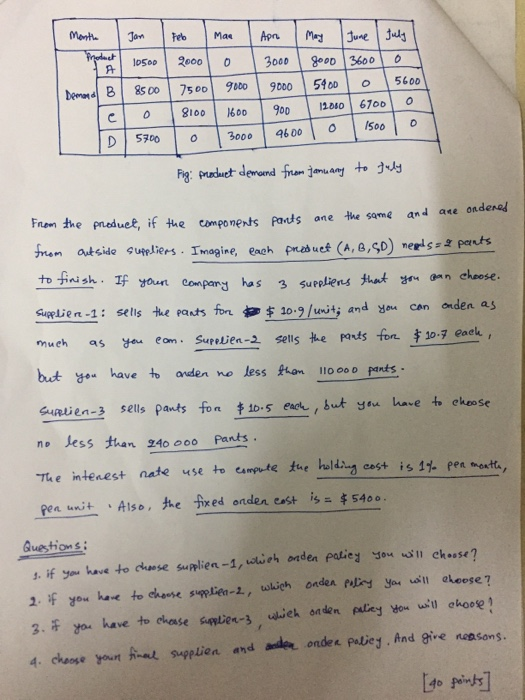 Month Jan Feb Mar April May June July
Product
A 10500 2000 0 3000 8000 3600 0
Demand B 8500 7500 9000 9000 5400 0 5600
C 0 8100 1600 900 12000 6700 0
D 5700 0 3000 4600 0 1500 0
Fig: product demand from january to July
From the product, if the components parts are the same and are ordered
from outside suppliers. Imagine, each product (A, B, C, D) needs = 2 parts
to finish. If your company has 3 suppliers that you can choose.
Supplier-1: sells the parts for $ 10.9/unit; and you can order as
much as you can. Supplier-2 sells the parts for $ 10.7 each,
but you have to order no less than 110000 parts.
Supplier-3 sells parts for $ 10.5 each, but you have to choose
no less than 240000 parts.
The interest rate use to compute the holding cost is 1% per month,
per unit. Also, the fixed order cost is = $ 5400.
Questions:
1. if you have to choose supplier-1, which order policy you will choose?
2. if you have to choose supplier-2, which order policy you will choose?
3. if you have to choose supplier-3, which order policy you will choose?
4. choose your final supplier and order policy. And give reasons.
[40 points]